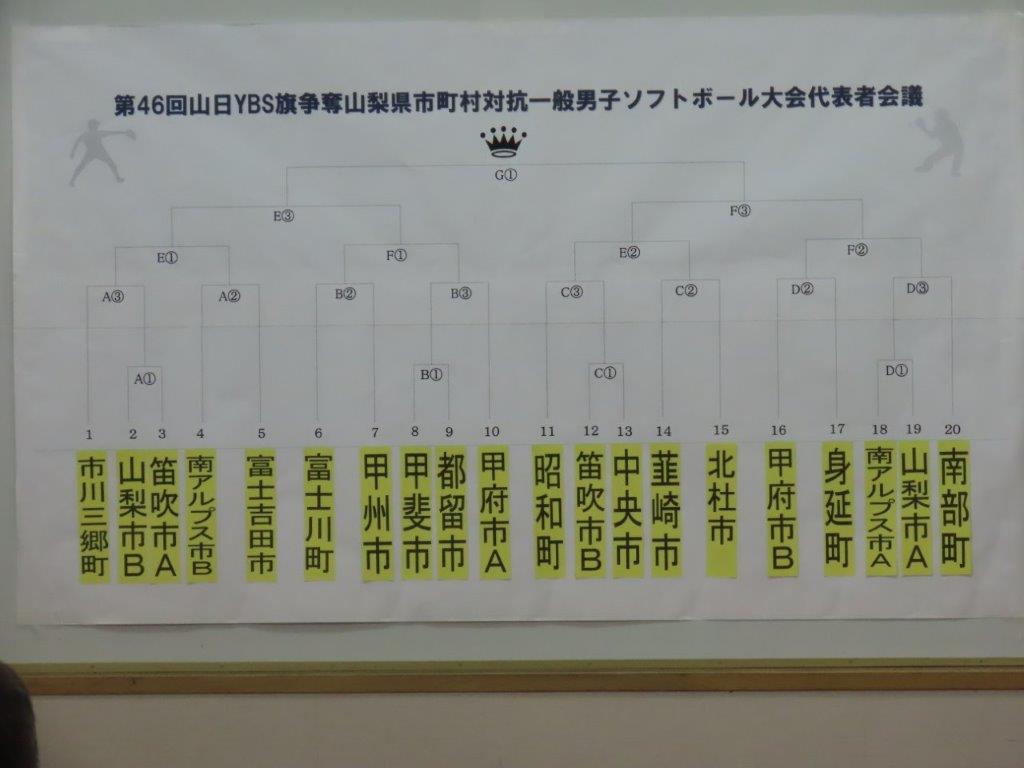 第46回山日YBS旗争奪山梨県市町村対抗一般男子ソフトボール大会代表者会議
G①
E③ F③
E① F① E② F②
A③ A② B② B③ C③ C② D② D③
A① B① C① D①
1 2 3 4 5 6 7 8 9 10 11 12 13 14 15 16 17 18 19 20
市川三郷町
山梨市B
笛吹市A
南アルプス市B
富士吉田市
富士川町
甲州市
甲斐市
都留市
甲府市A
昭和町
笛吹市B
中央市
韮崎市
北杜市
甲府市B
身延町
南アルプス市A
山梨市A
南部町